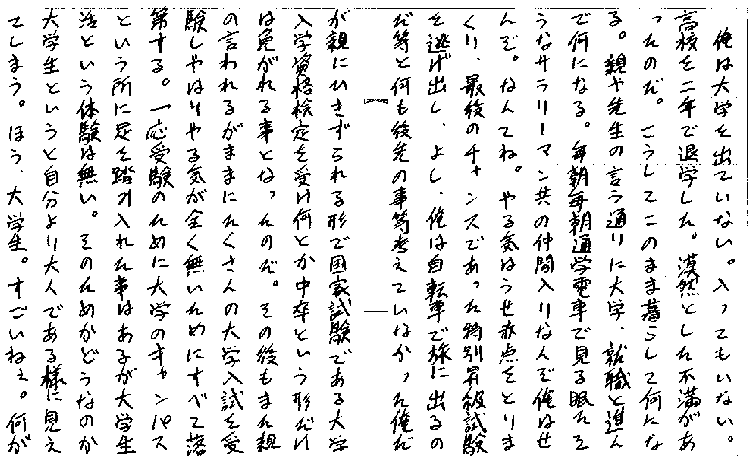 俺は大学を出ていない。入ってもいない。
高校を二年で退学した。漠然とした不満があ
ったのだ。こうしてこのまま暮らして何にな
る。親や先生の言う通りに大学、就職と進ん
で何になる。毎朝毎朝通学電車で見る眠たそ
うなサラリーマン共の仲間入りなんぞ俺はせ
んぞ。なんてね。やる気はうせ赤点をとりま
くり、最後のチャンスであった特別昇級試験
を逃げ出し、よし、俺は自転車で旅に出るの
だ等と何も後先の事等考えていなかった俺だ
が親にひきずられる形で国家試験である大学
入学資格検定を受け何とか中卒という形だけ
は免がれる事となったのだ。その後もまた親
の言われるがままにたくさんの大学入試を受
験しやはりやる気が全く無いためにすべて落
第する。一応受験のために大学のキャンパス
という所に足を踏み入れた事はあるが大学生
活という体験は無い。そのためかどうなのか
大学生というと自分より大人である様に見え
てしまう。ほう、大学生。すごいねぇ。何が